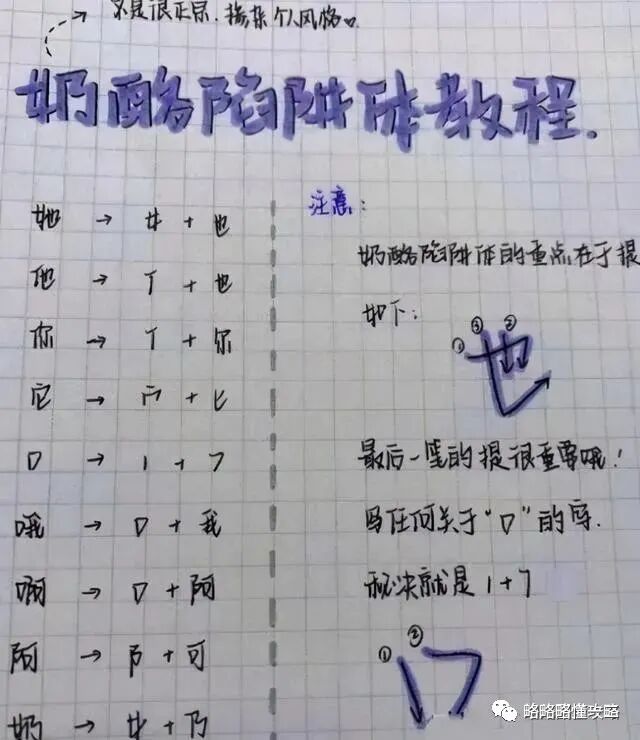 不是很正宗,掺杂个人风格。
奶酪陷阱体教程.
她 → 女 + 也
他 → 亻 + 也
你 → 亻 + 尔
它 → 宀 + 匕
口 → 1 + 7
哦 → 口 + 我
啊 → 口 + 阿
阿 → 阝 + 可
奶 → 女 + 乃
注意:
奶酪陷阱体的重点在于提
如下:
① ③ ②
也
最后一笔的提很重要哦!
写任何关于“口”的字.
秘诀就是 1 + 7
① ②
口
略略略懂攻略